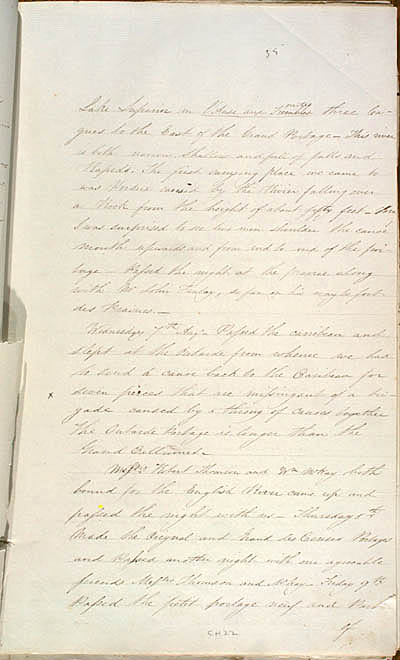 35
Lake Superior in l'Anse aux three lea-
gues to the East of the Grand Portage – This river
is both narrow shallow and full of falls and
Rapids. The first carrying place we came to
was Perdrix caused by the River falling over
a Rock from the height of about fifty feet – here
I was surprised to see two men shoulder the canoe
mouth upwards and from end to end of the por-
tage – Passed the night at the prairie along
with Mr John Finlay, so far on his way to fort
des Prairies –
Wednesday 7th Augt. Passed the caribeau and
slept at the outarde from whence we had
to send a canoe back to the Caribeau for
seven pieces that are missing out of a bri-
x gade caused by a throng of canoes together
The Outarde Portage is longer than the
Grand
Messrs Robert Thomson and Wm McKay both
bound for the English River came up and
passed the night with us – Thursday 8th
Made the Orignal and Grand des Cerises Portages
and Passed another night with our agreeable
friends Messrs Thomson and McKay – Friday 9th
Passed the petit portage neuf and
of
CH22